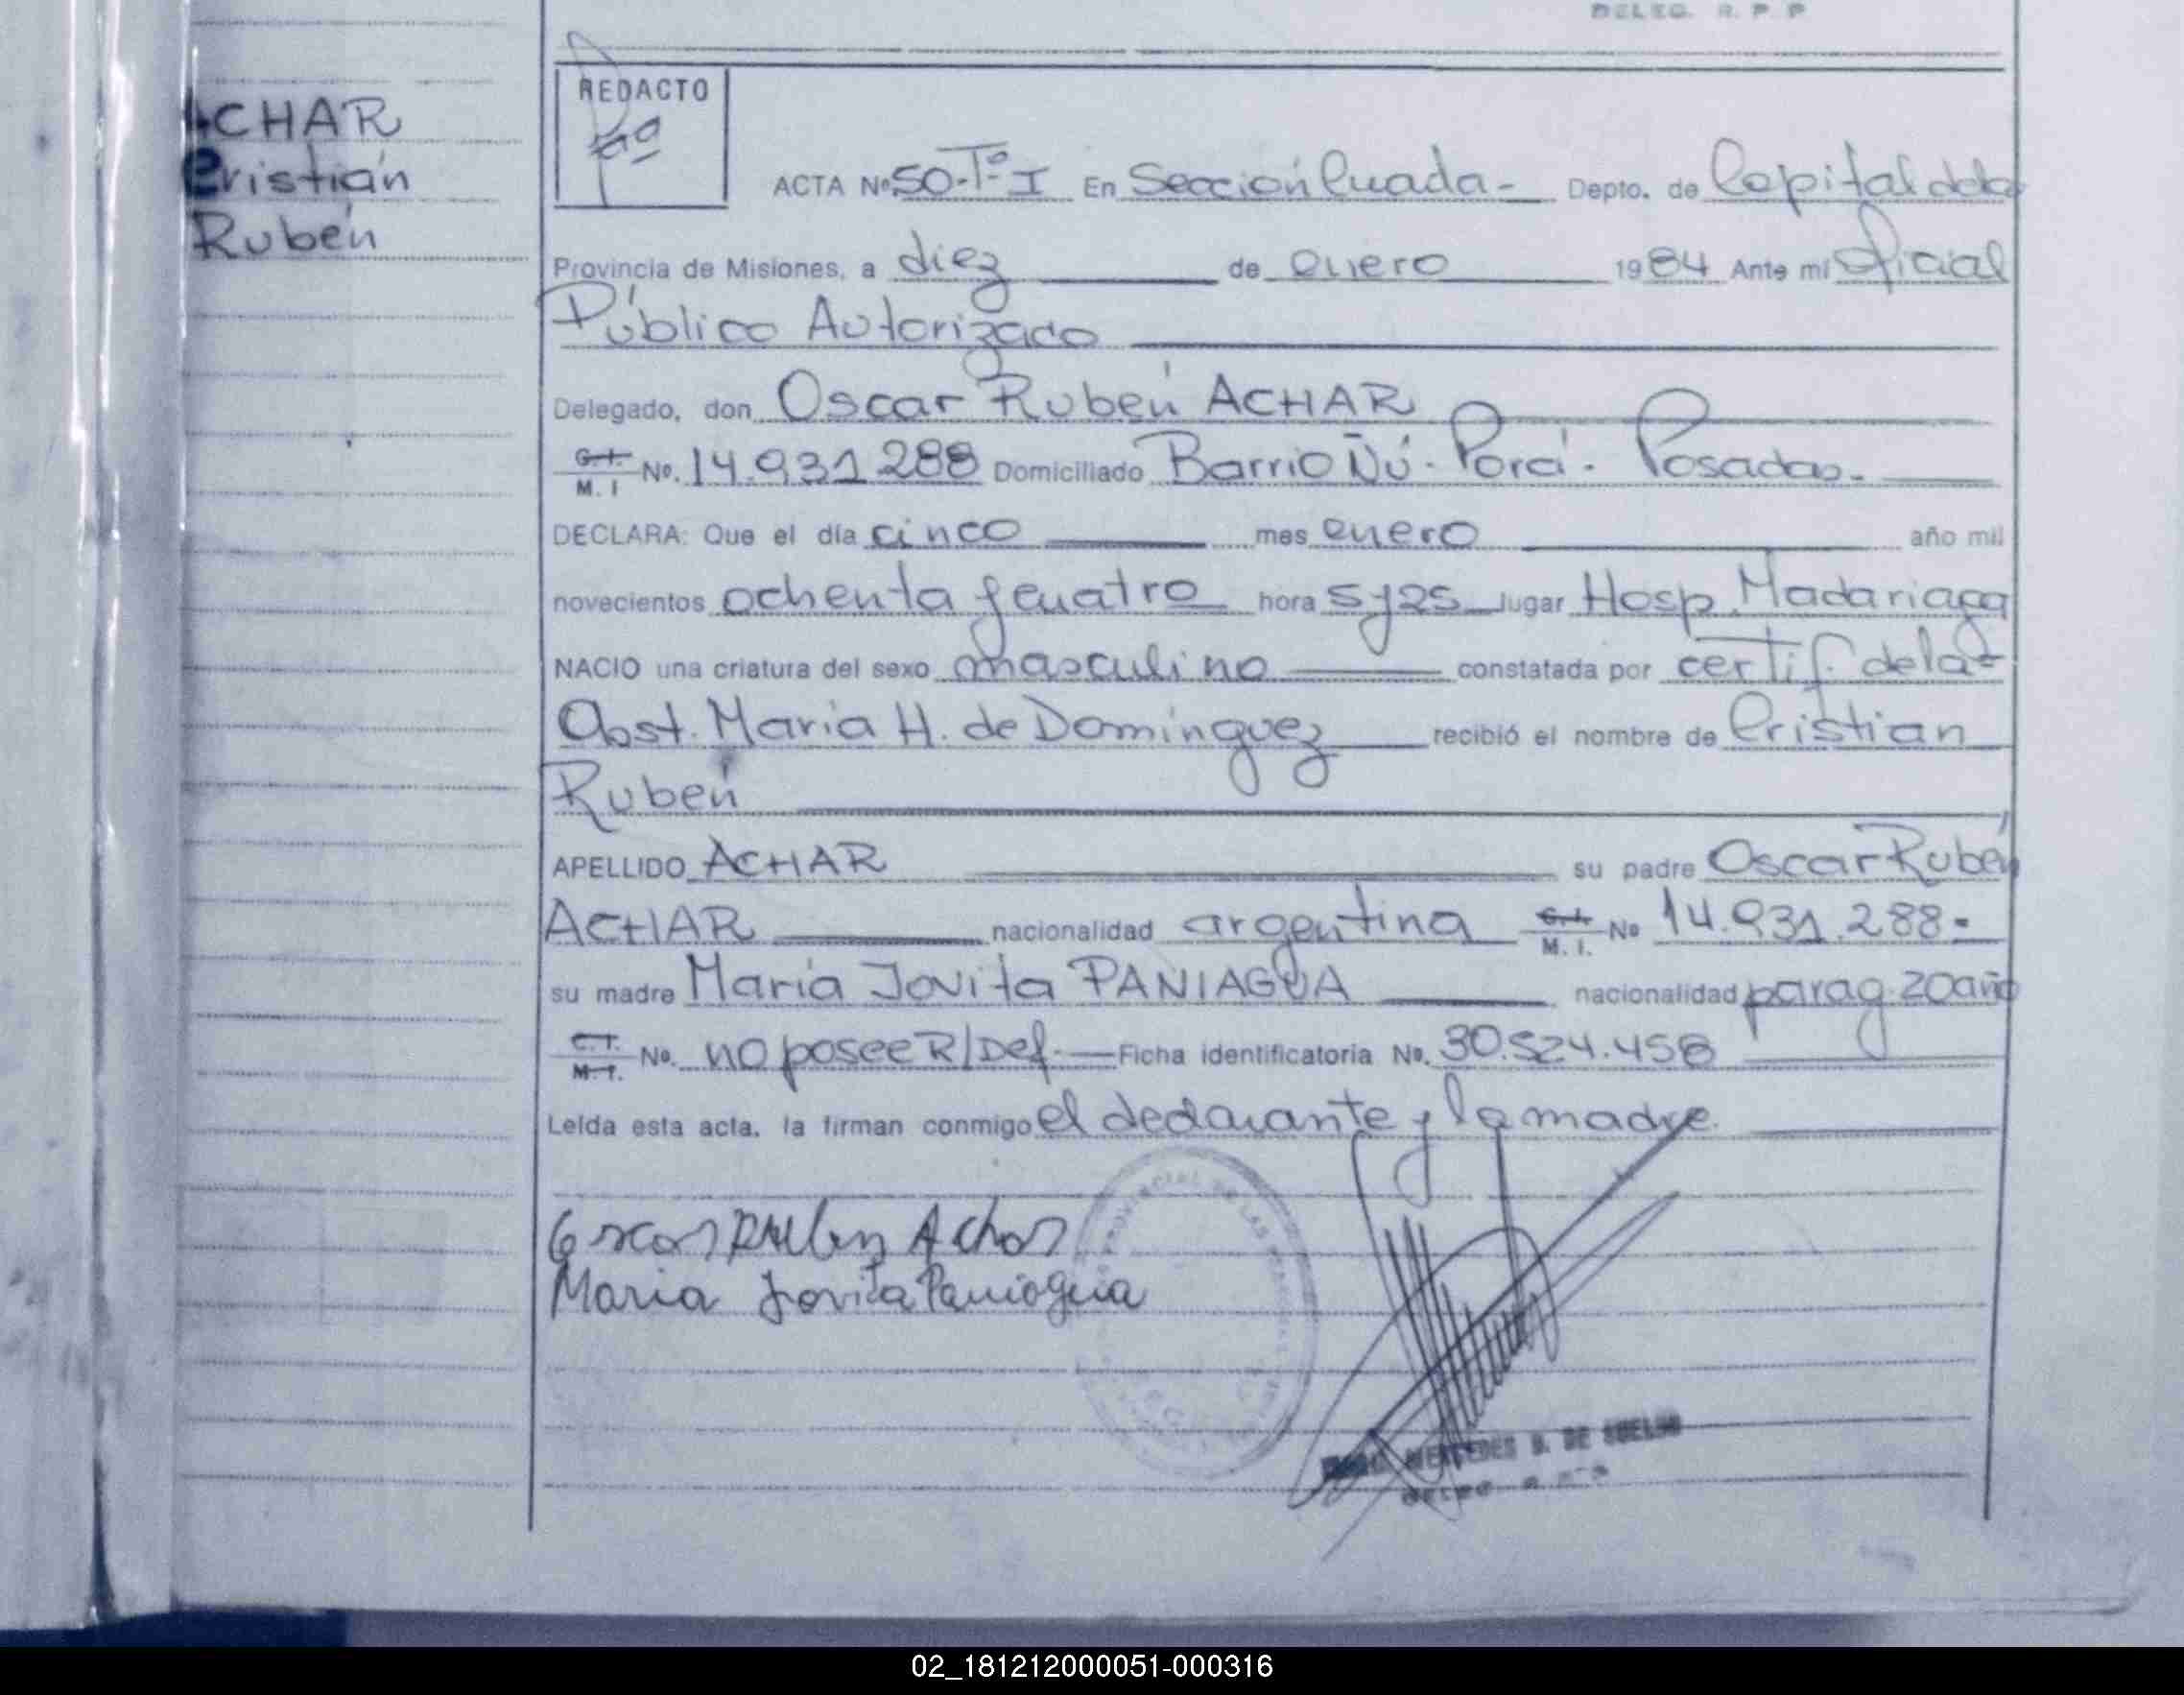 DELEG. R. P. P
ACHAR
Cristian
Rubén
REDACTO
ACTA Nº 50-Tº I En Sección Cuada- Depto. de Capital dela
Provincia de Misiones, a diez de enero 1984 Ante mí Oficial
Público Autorizado
Delegado, don Oscar Rubén ACHAR
C.I. M. I Nº. 14.931.288 Domiciliado Barrio Ñú-Porá-Posadas-
DECLARA: Que el día cinco mes enero año mil
novecientos ochenta y cuatro hora 5y25 lugar Hosp. Madariaga
NACIO una criatura del sexo masculino constatada por certif. dela
Obst. María H. de Domínguez recibió el nombre de Cristian
Rubén
APELLIDO ACHAR su padre Oscar Rubén
ACHAR nacionalidad argentina C.I. M. I. Nº 14.931.288-
su madre María Jovita PANIAGUA nacionalidad parag. 20 año
C.I. M.I. Nº. no posee R/Def. Ficha identificatoria Nº. 30.524.458
Leída esta acta, la firman conmigo el declarante y la madre
Oscar Ruben Achar
Maria Jovita Paniagua
MERCEDES B. DE
02_181212000051-000316